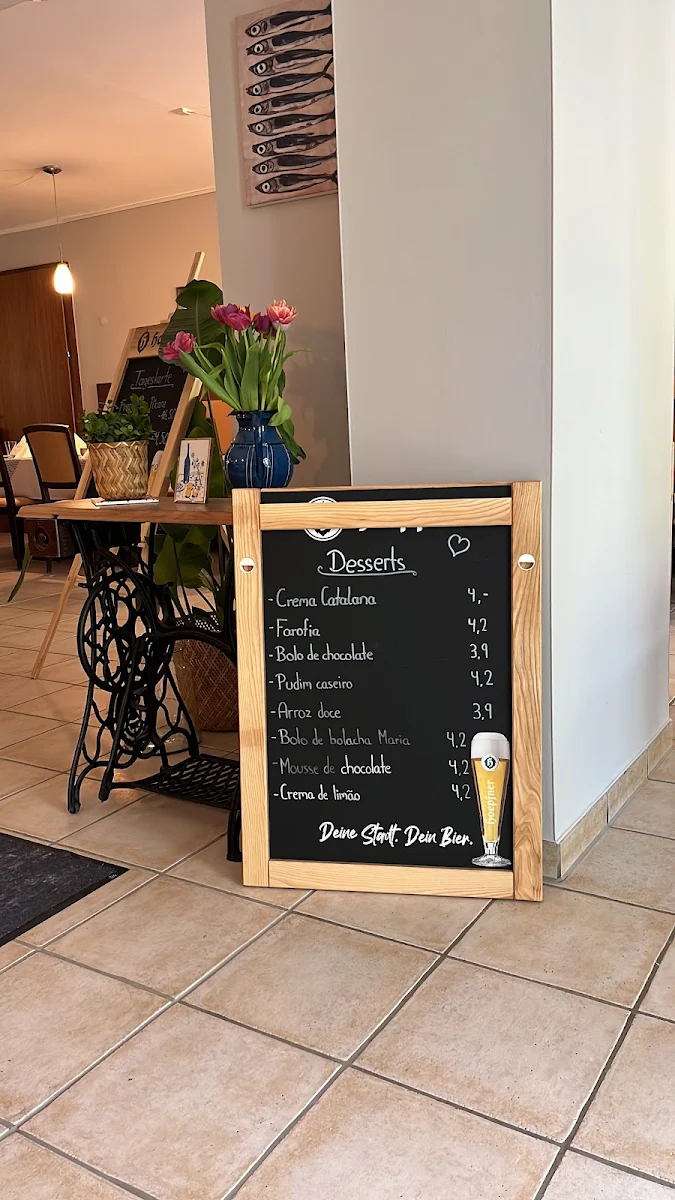 Tageskarte
Desserts
- Crema Catalana 4,-
- Farofia 4,2
- Bolo de chocolate 3,9
- Pudim caseiro 4,2
- Arroz doce 3,9
- Bolo de bolacha Maria 4,2
- Mousse de chocolate 4,2
- Crema de limão 4,2
hoepfner
Deine Stadt. Dein Bier.